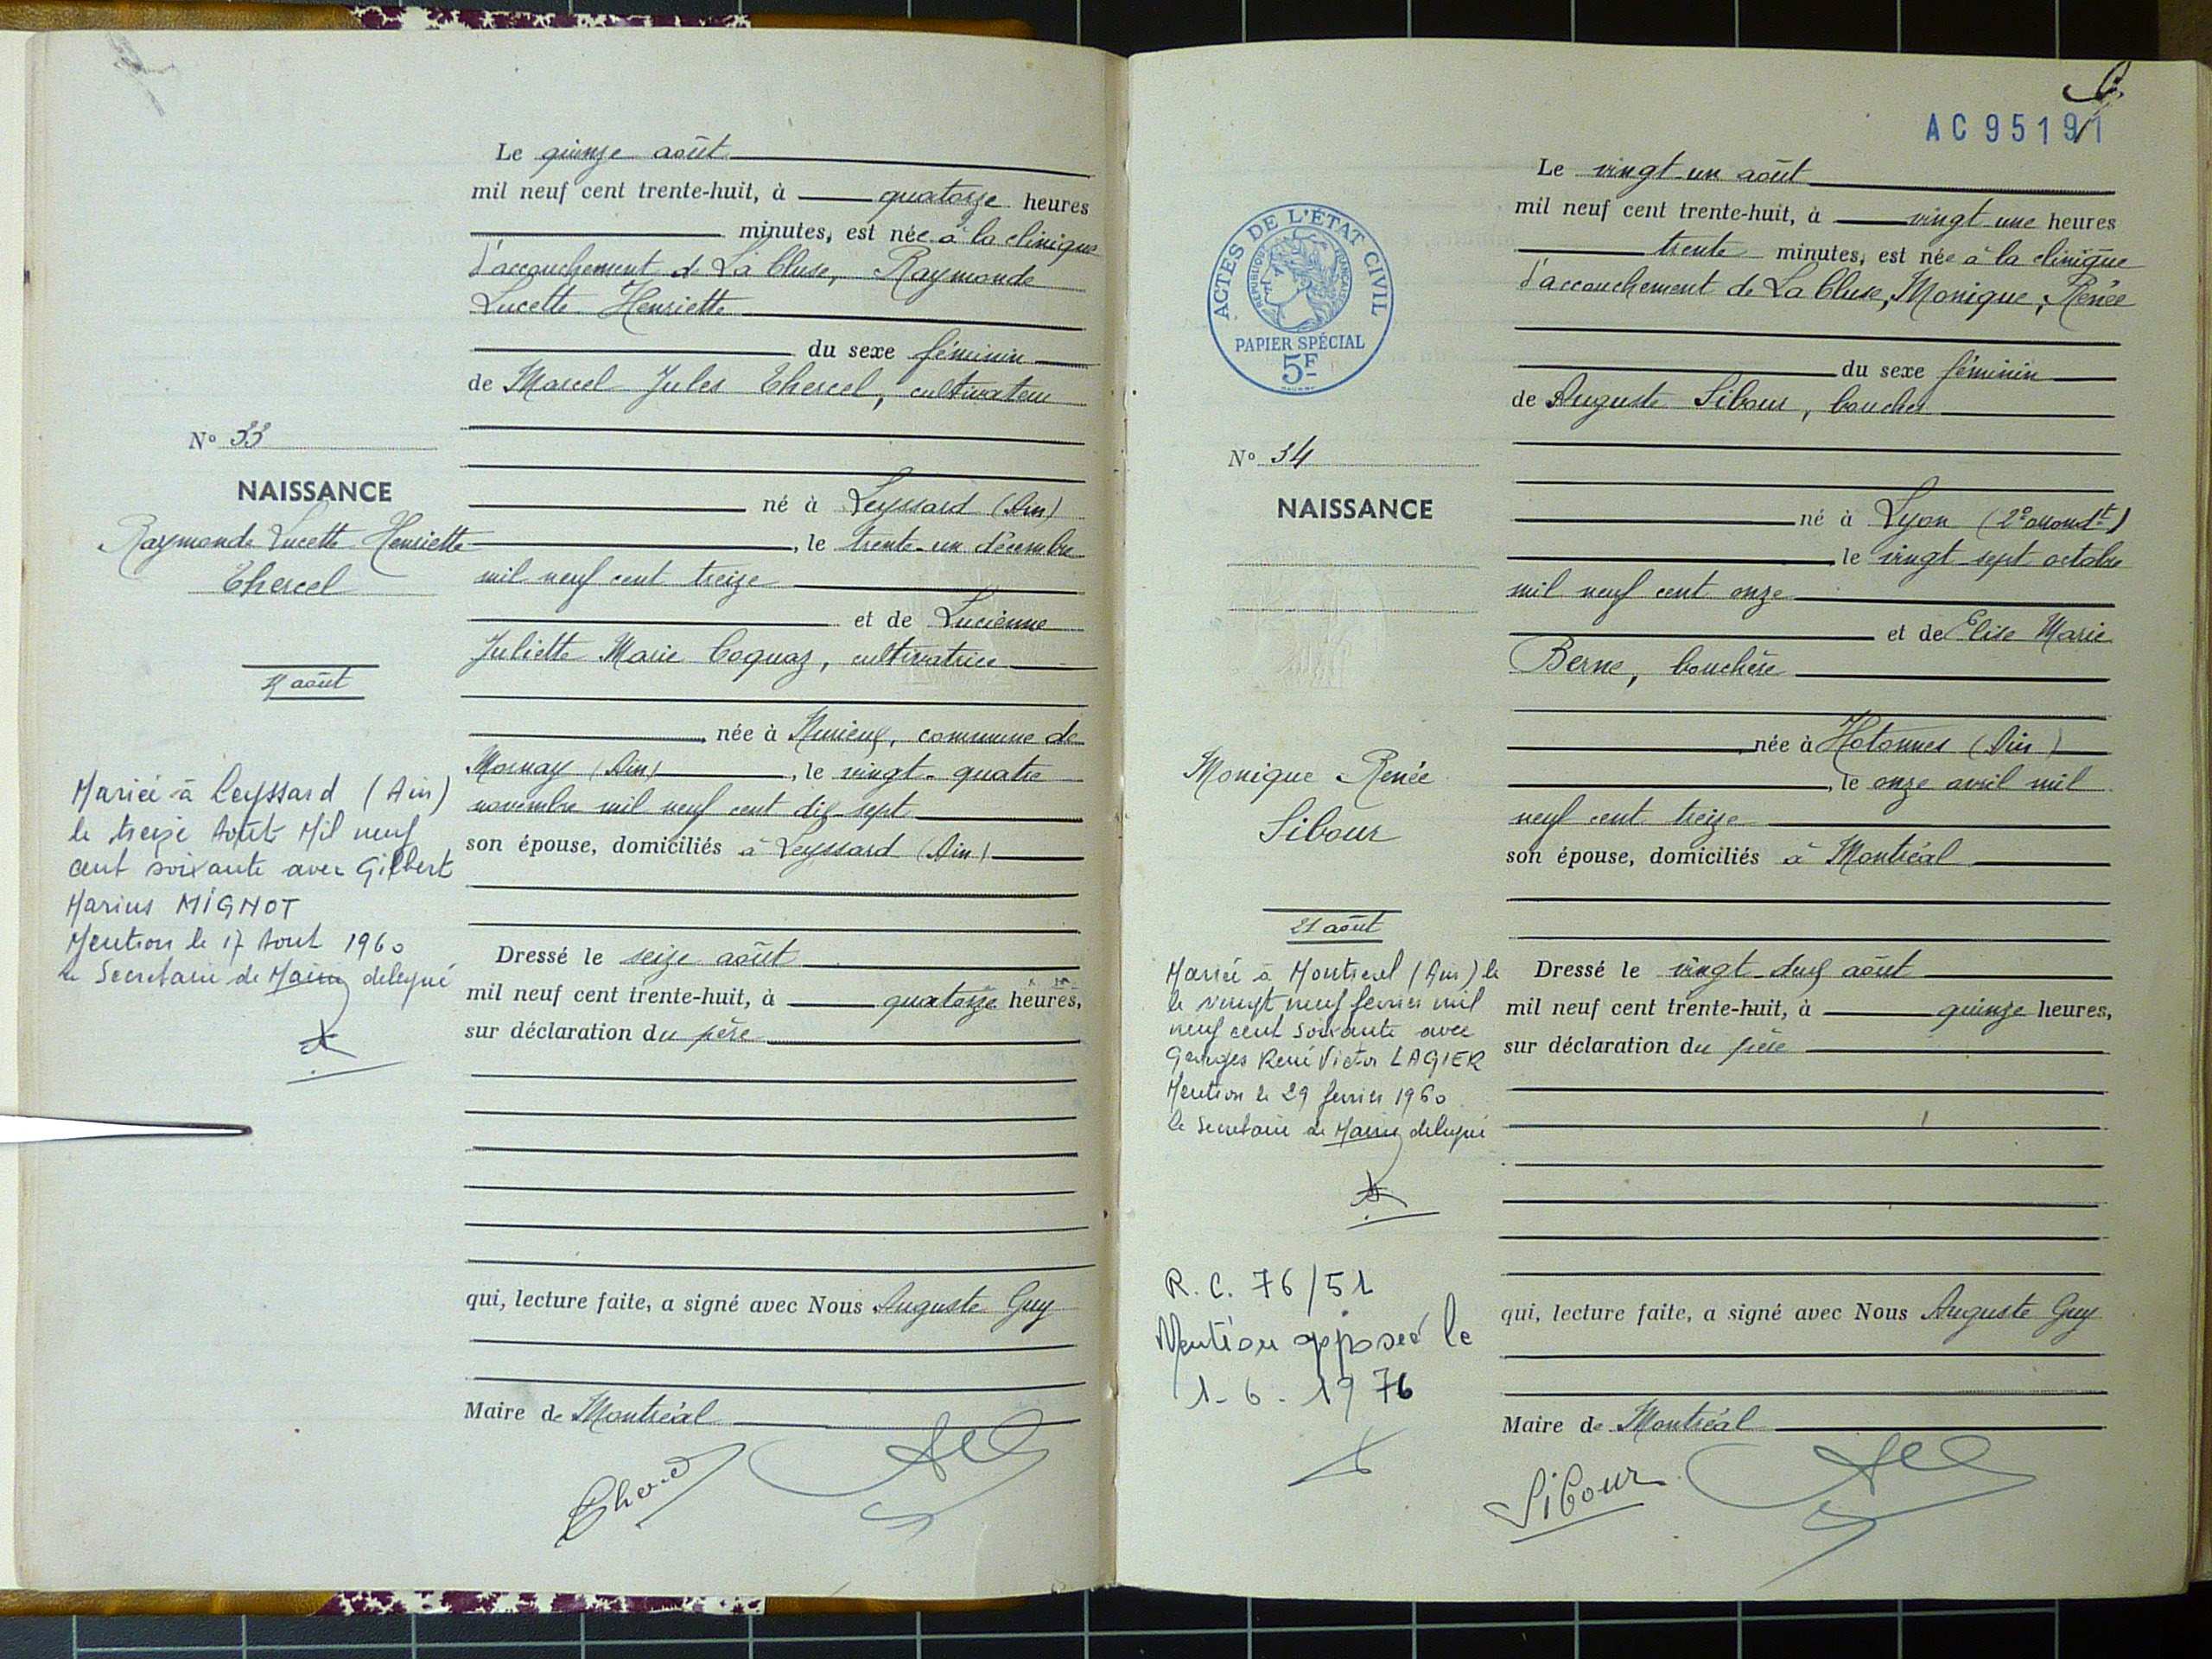 Le quinze août
mil neuf cent trente-huit, à quatorze heures
minutes, est née à la clinique
d'accouchement de La Cluse, Raymonde
Lucette Henriette
du sexe féminin
de Marcel Jules Chercel, cultivateur
né à Leyssard (Ain)
, le trente-un décembre
mil neuf cent treize
et de Lucienne
Juliette Marie Coquaz, cultivatrice
née à Nurieux, commune de
Mornay (Ain), le vingt-quatre
novembre mil neuf cent dix-sept
son épouse, domiciliés à Leyssard (Ain)
Dressé le seize août
mil neuf cent trente-huit, à quatorze heures,
sur déclaration du père
qui, lecture faite, a signé avec Nous Auguste Guy
Maire de Montréal
No 33
NAISSANCE
Raymonde Lucette Henriette
Chercel
août
Mariée à Leyssard (Ain)
le treize Août Mil neuf
cent soixante avec Gilbert
Marius MIGNOT
Mention le 17 Aout 1960
le Secretaire de Mairie delegué
AC 95191
Le vingt-un août
mil neuf cent trente-huit, à vingt-une heures
trente minutes, est née à la clinique
d'accouchement de La Cluse, Monique, Renée
du sexe féminin
de Auguste Sibour, boucher
né à Lyon (2e arrondt)
le vingt sept octobre
mil neuf cent onze
et de Elise Marie
Berne, bouchère
née à Hotonnes (Ain)
, le onze avril mil
neuf cent treize
son épouse, domiciliés à Montréal
Dressé le vingt-deux août
mil neuf cent trente-huit, à quinze heures,
sur déclaration du père
qui, lecture faite, a signé avec Nous Auguste Guy
Maire de Montréal
Sibour
ACTES DE L'ÉTAT CIVIL
RÉPUBLIQUE FRANÇAISE
PAPIER SPÉCIAL
5F
No 34
NAISSANCE
Monique Renée
Sibour
21 août
Mariée à Montreal (Ain) le
le vingt neuf fevrier mil
neuf cent soixante avec
Georges René Victor LAGIER
Mention le 29 fevrier 1960
le Secretaire de Mairie delegué
R.C. 76/51
Mention apposée le
1-6-1976